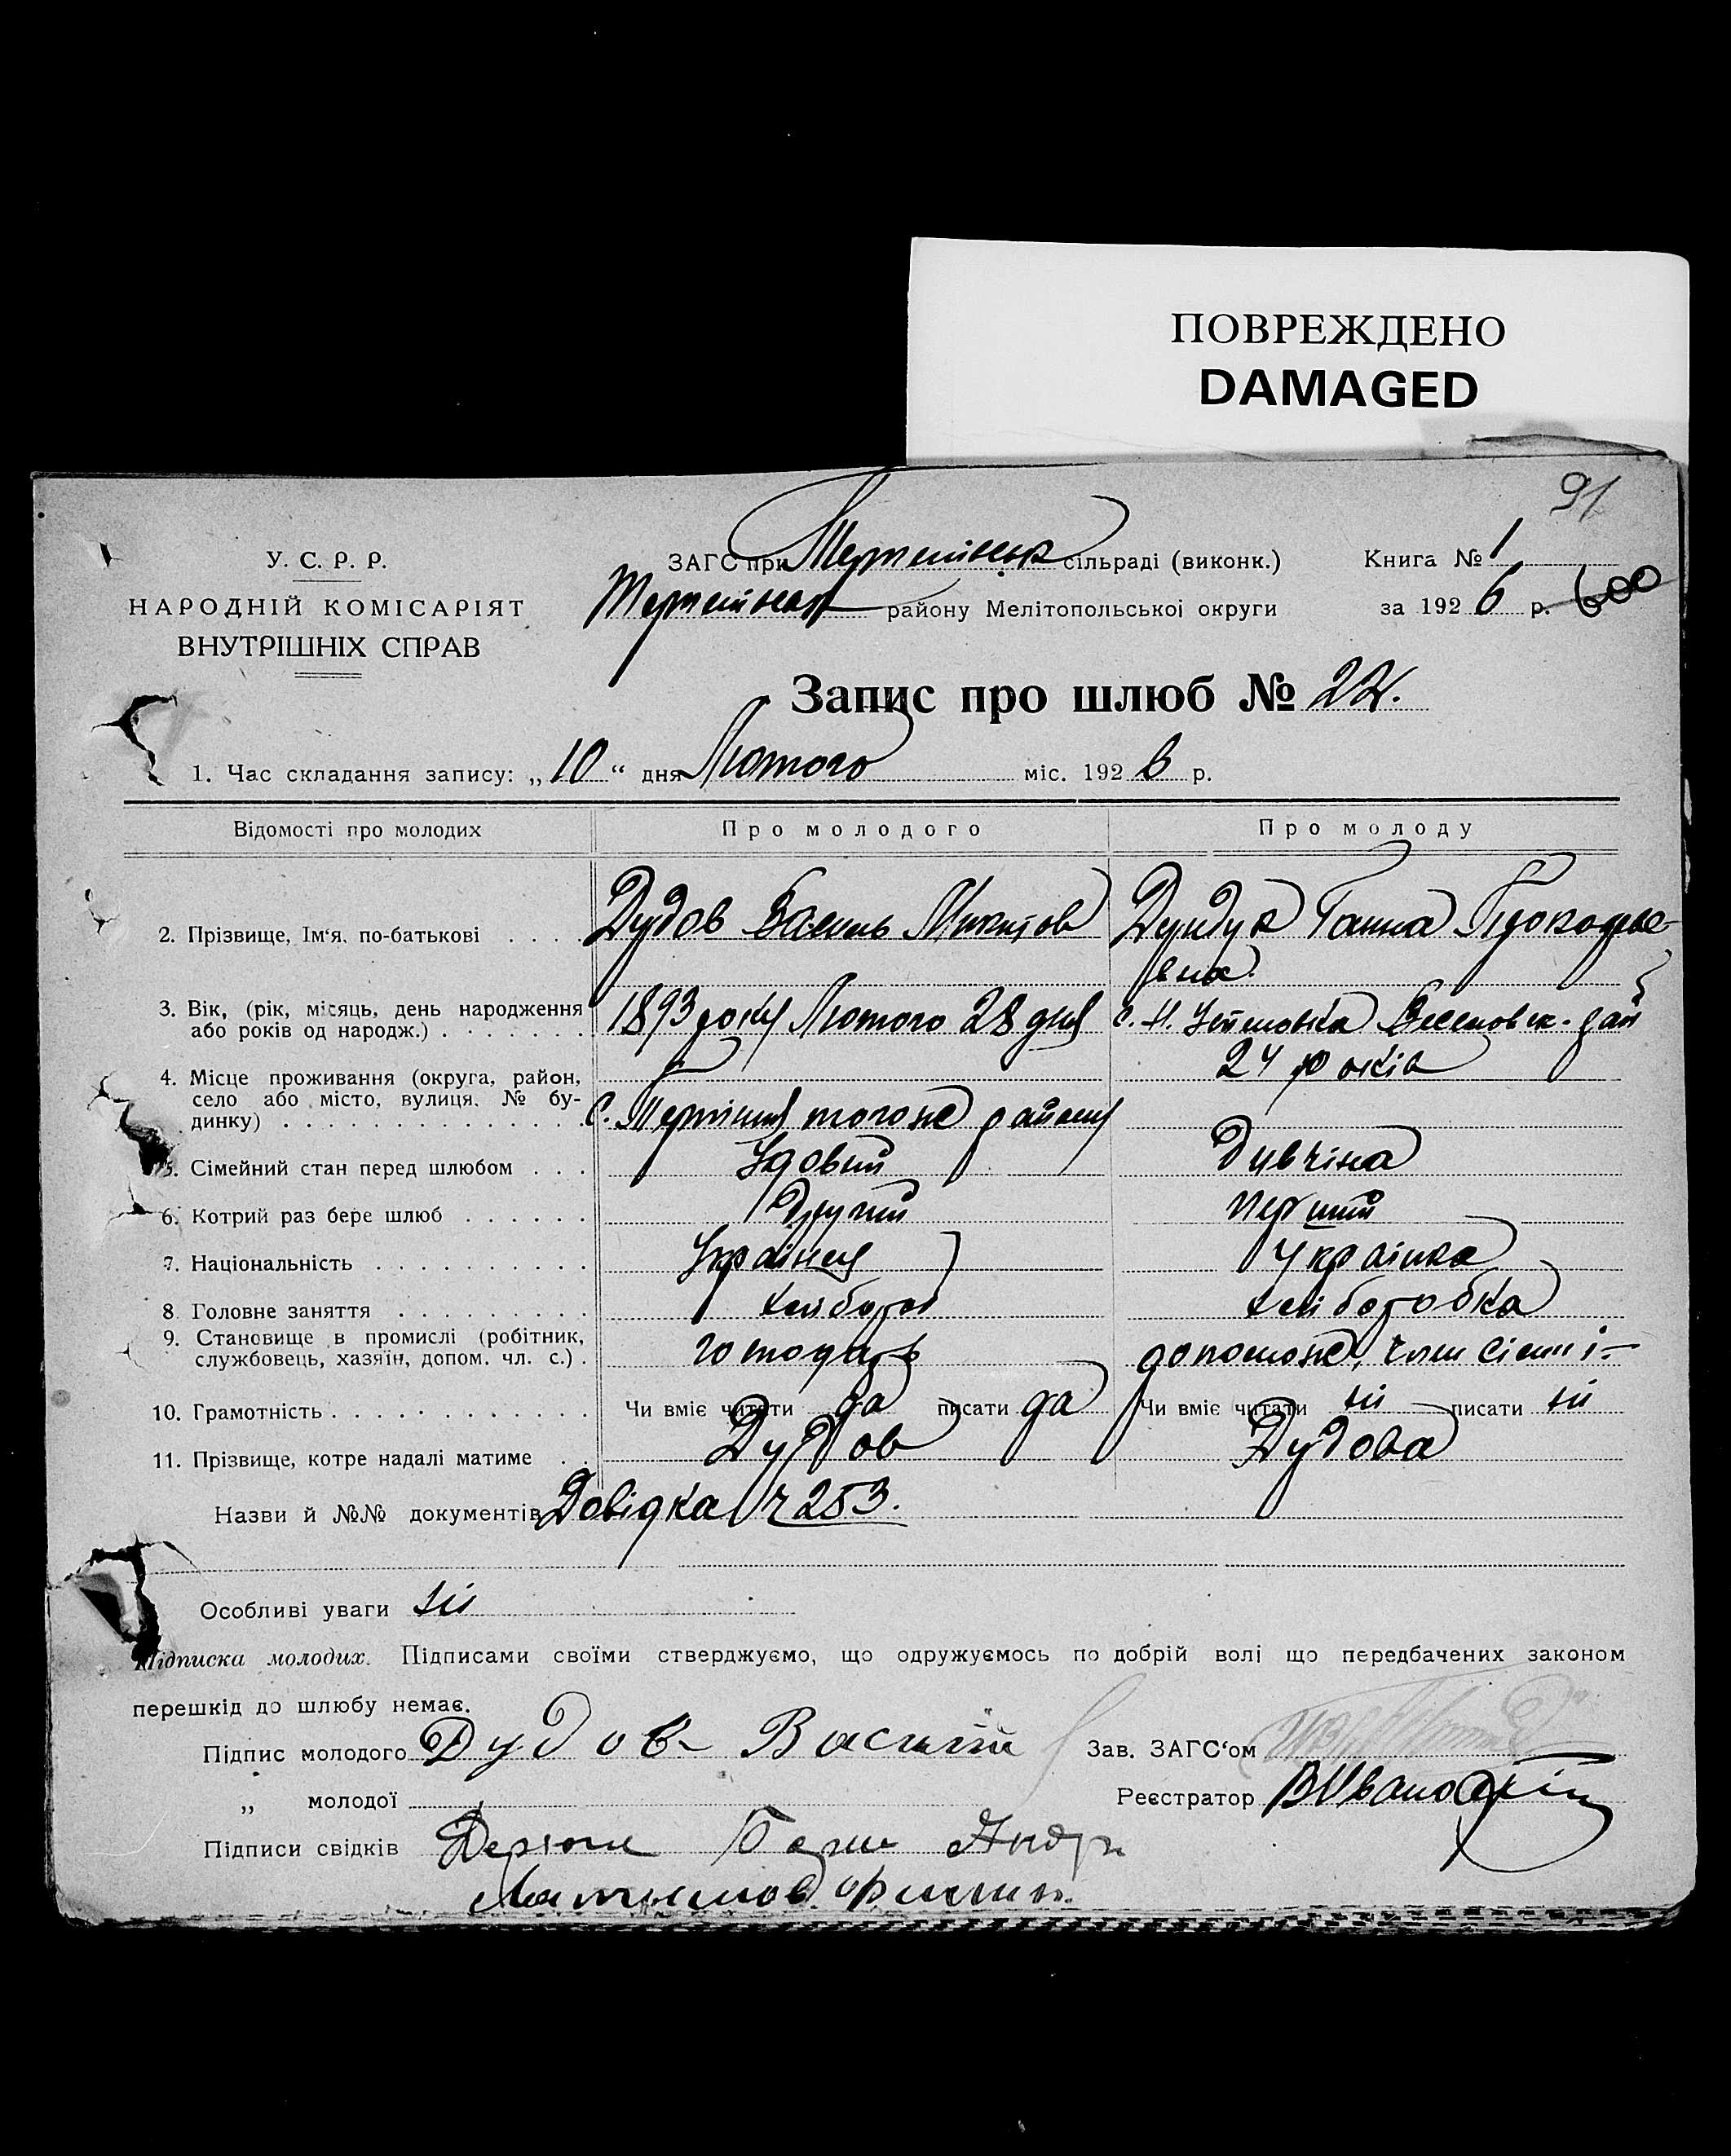 ПОВРЕЖДЕНО
DAMAGED
91
У. С. Р. Р.
НАРОДНІЙ КОМІСАРІЯТ
ВНУТРІШНІХ СПРАВ
ЗАГС при сільраді (виконк.)
району Мелітопольської округи
Книга № 1
за 192 6 р. 600
Запис про шлюб № 22.
1. Час складання запису: „ 10 “ дня Лютого міс. 192 6 р.
Відомості про молодих Про молодого Про молоду
2. Прізвище, Ім‘я, по-батькові . . . Дудов Василь Микитов Дундук Ганна Прокофье-
вна.
3. Вік, (рік, місяць, день народження
або років од народж.) . . . . . . . 1893 року Лютого 28 дня
24 років
4. Місце проживання (округа, район,
село або місто, вулиця, № бу-
динку) . . . . . . . . . . . . . . тогоже району
5. Сімейний стан перед шлюбом . . . Удовий Дивчіна
6. Котрий раз бере шлюб . . . . . . Другий Перший
7. Національність . . . . . . . . . . Украінец Украінка
8 Головне заняття . . . . . . . . . хліборобка
9. Становище в промислі (робітник,
службовець, хазяїн, допом. чл. с.) . господарь допомож. член сіемьі
10. Грамотність . . . . . . . . . . . . Чи вміє читати да писати да Чи вміє читати ні писати ні
11. Прізвище, котре надалі матиме . . Дудов Дудова
Назви й №№ документів Довідка Ч 253.
Особливі уваги ні
Підписка молодих. Підписами своїми стверджуємо, що одружуємось по добрій волі що передбачених законом
перешкід до шлюбу немає.
Підпис молодого Дудов Василій Зав. ЗАГС‘ом
„ молодої Реєстратор
Підписи свідків